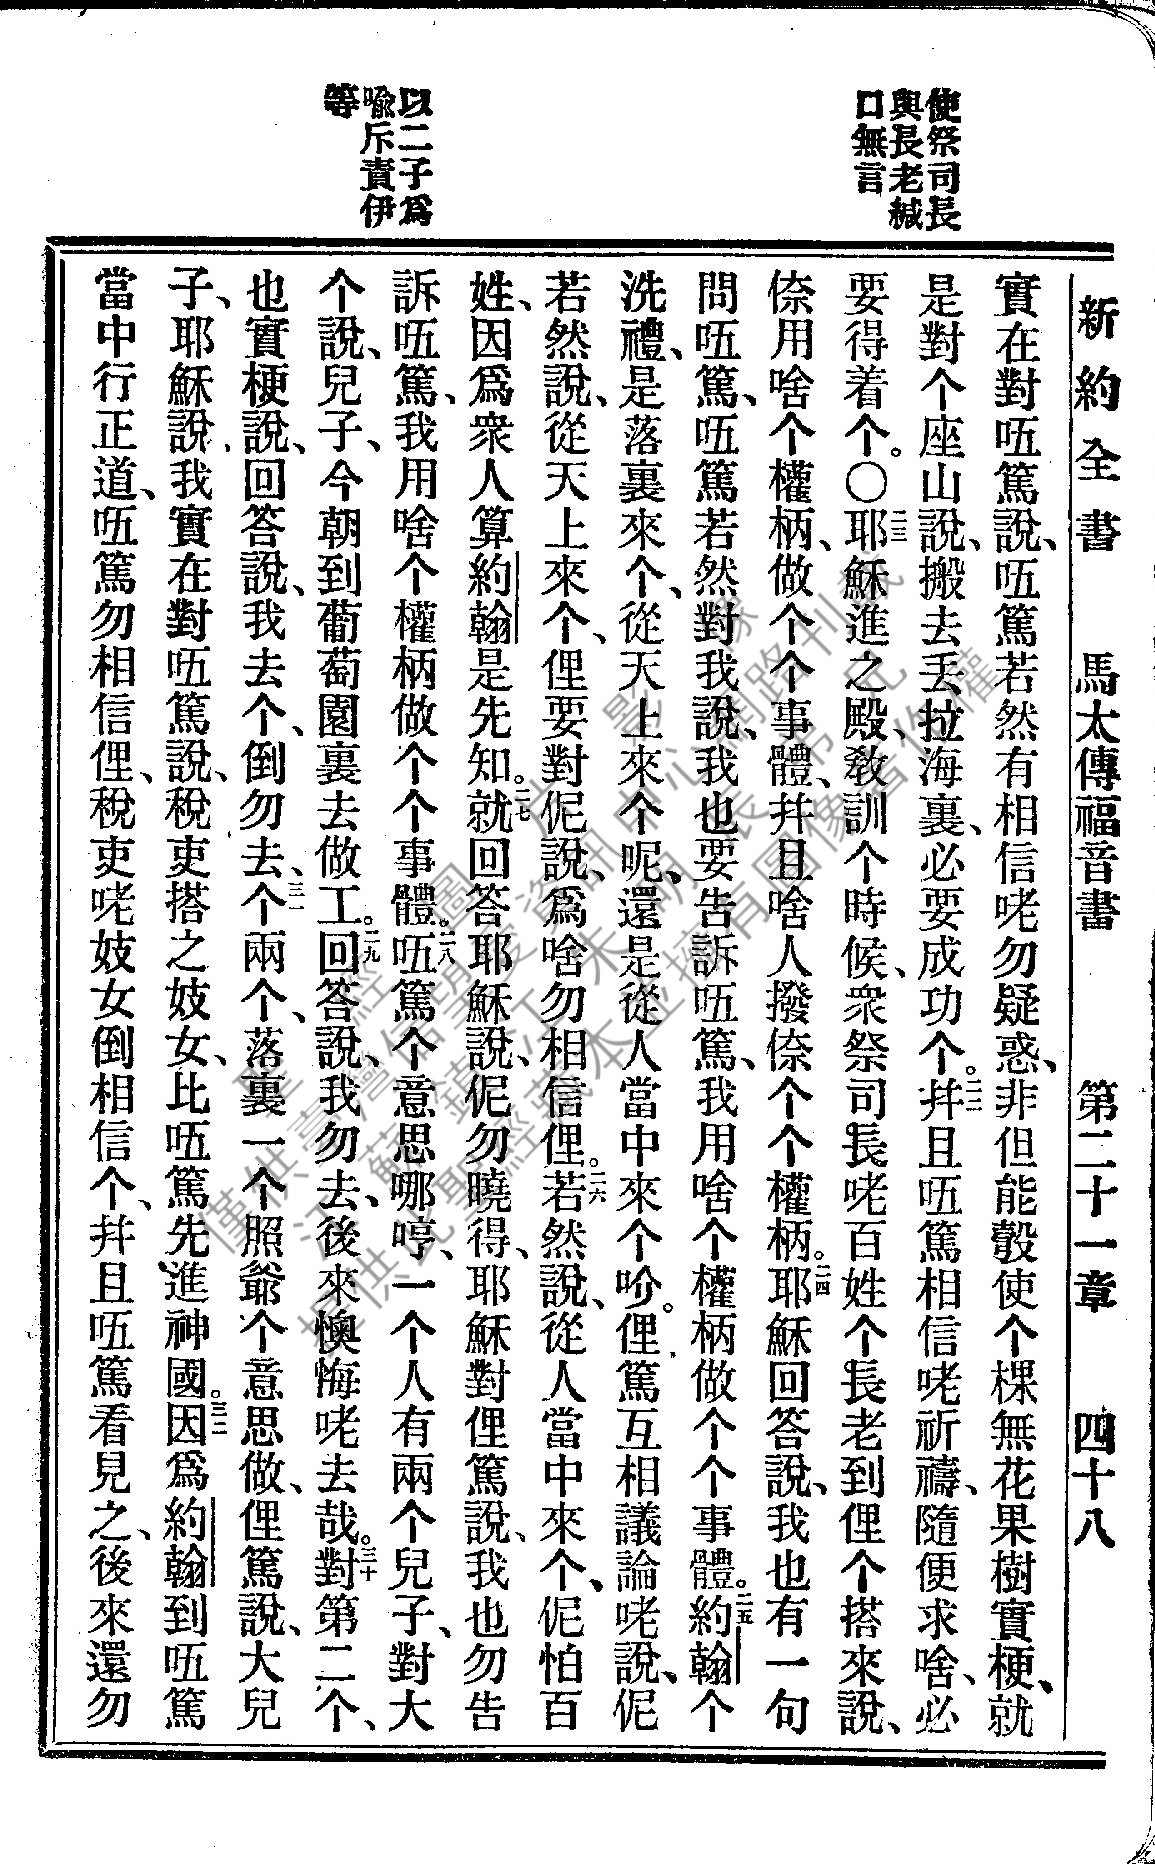 新約全書　馬太傳福音書　第二十一章　四十八
使祭司長
與長老緘
口無言
以二子爲
喻斥責伊
等
實在對㕶篤說、㕶篤若然有相信咾勿疑惑、非但能彀使个棵無花果樹實梗、就
是對个座山說、搬去丢拉海裏、必要成功个。二二幷且㕶篤相信咾祈禱、隨便求啥、必
要得着个。〇二三耶穌進之殿、敎訓个時候、衆祭司長咾百姓个長老到俚个搭來說、
倷用啥个權柄、做个个事體、幷且啥人撥倷个个權柄。二四耶穌回答說、我也有一句
問㕶篤、㕶篤若然對我說、我也要告訴㕶篤、我用啥个權柄做个个事體。二五約翰个
洗禮、是落裏來个、從天上來个呢、還是從人當中來个吤。俚篤互相議論咾說、伲
若然說、從天上來个、俚要對伲說、爲啥勿相信俚。二六若然說、從人當中來个、伲怕百
姓、因爲衆人算約翰是先知。二七就回答耶穌說、伲勿曉得、耶穌對俚篤說、我也勿告
訴㕶篤、我用啥个權柄做个个事體。二八㕶篤个意思哪哼、一个人有兩个兒子、對大
个說、兒子、今朝到葡萄園裏去做工。二九回答說、我勿去、後來懊悔咾去哉。三十對第二个、
也實梗說、回答說、我去个、倒勿去、三一个兩个、落裏一个照爺个意思做、俚篤說、大兒
子、耶穌說、我實在對㕶篤說、稅吏搭之妓女、比㕶篤先進神國。三二因爲約翰到㕶篤
當中行正道、㕶篤勿相信俚、稅吏咾妓女倒相信个、幷且㕶篤看見之、後來還勿